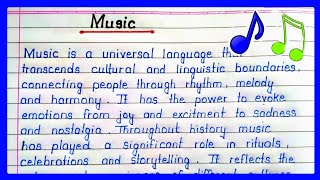 Music
Music is a universal language that
transcends cultural and linguistic boundaries,
connecting people through rhythm, melody
and harmony. It has the power to evoke
emotions from joy and excitment to sadness
and nostalgia. Throughout history music
has played a significant role in rituals,
celebrations and storytelling. It reflects the